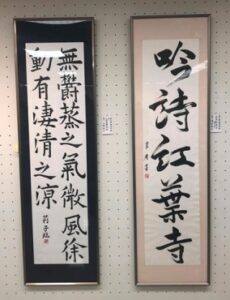 吟詩紅葉寺
無鬱蒸之氣微風徐
動有淒清之涼